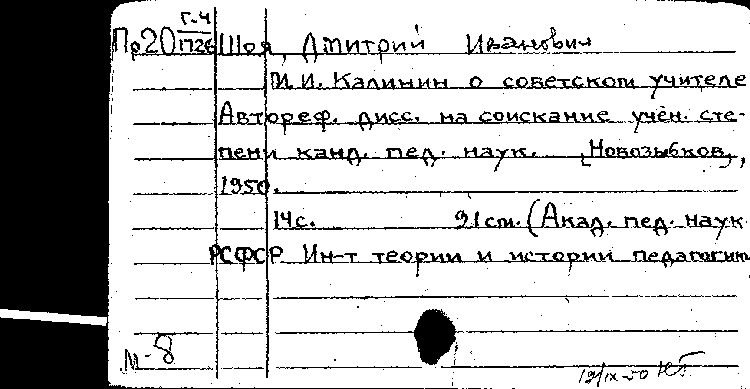 Пр20 Г-4/1726 Шоя, Дмитрий Иванович
М.И. Калинин о советском учителе
Автореф. дисс. на соискание учён. сте-
пени канд. пед. наук. [Новозыбков],
1950.
14 с. 21 см. (Акад. пед. наук
РСФСР Ин-т теории и истории педагогики
М-8